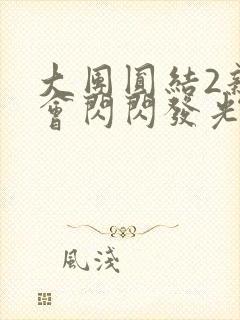 大團圓結2新
會閃閃發光
風淺